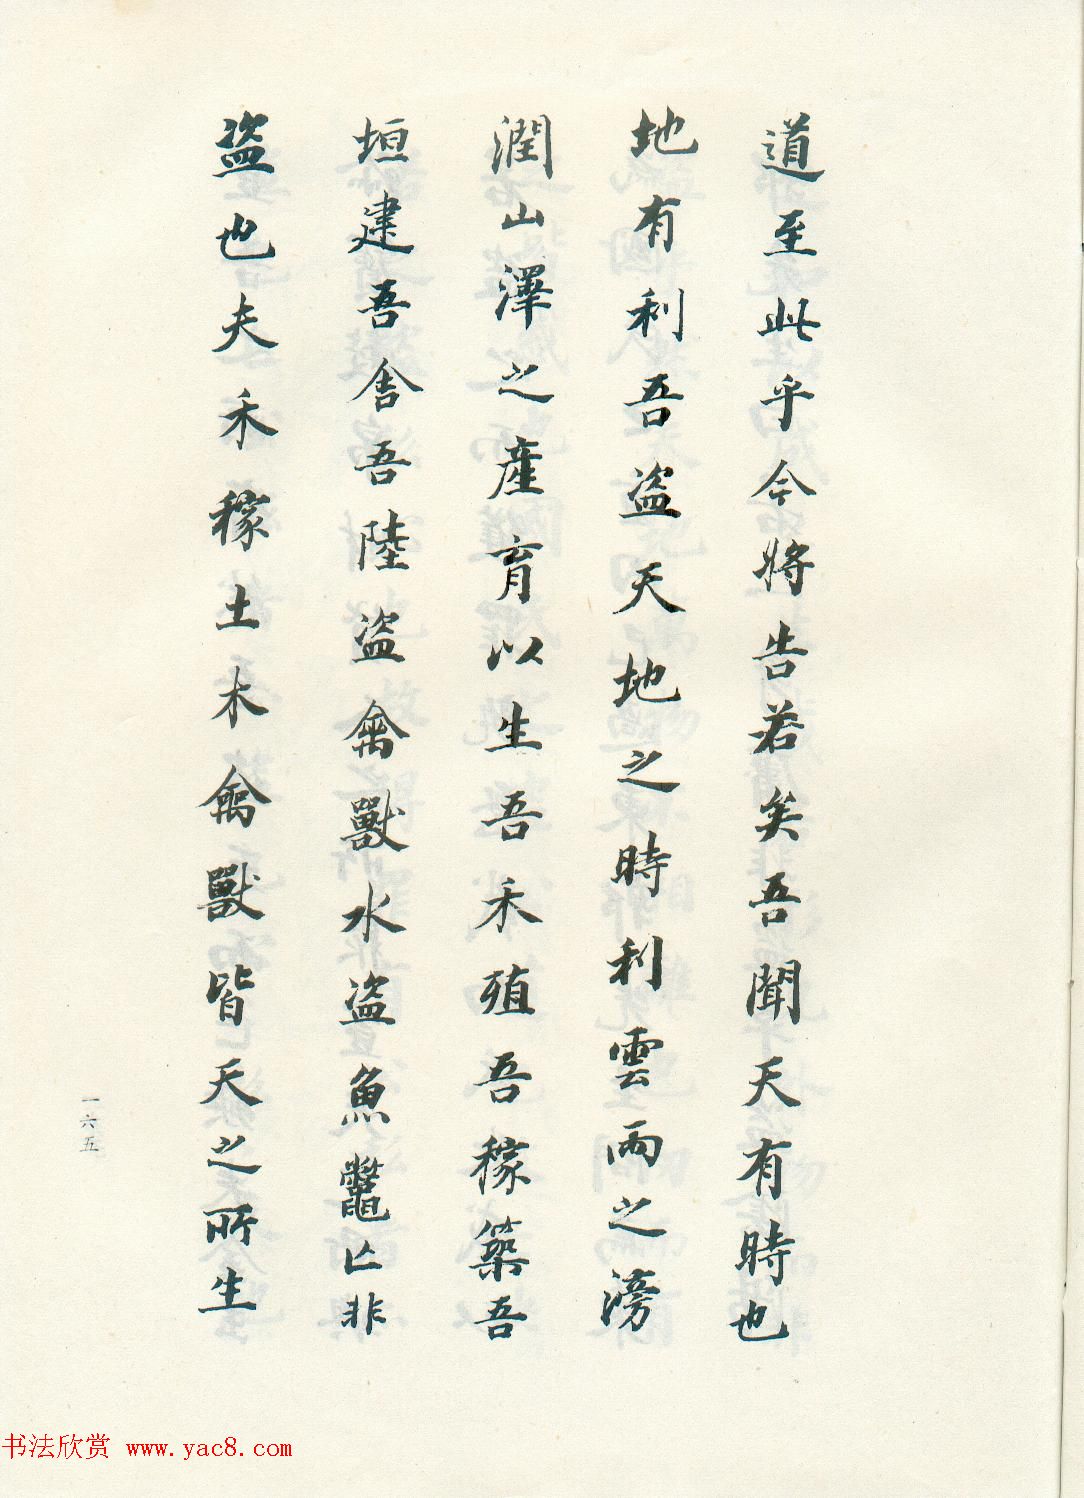 道至此乎今將告若矣吾聞天有時也
地有利吾盗天地之時利雲雨之滂
潤山澤之產育以生吾禾殖吾稼築吾
垣建吾舍吾陸盗禽獸水盗魚鼈亡非
盗也夫禾稼土木禽獸皆天之所生
一六五
书法欣赏 www.yac8.com